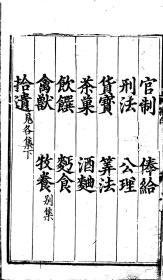 官制　俸給
刑法　公理
貨寳　算法
茶菓　酒麯
飲饌　麪食
禽獸　牧養别集
拾遺見各集下